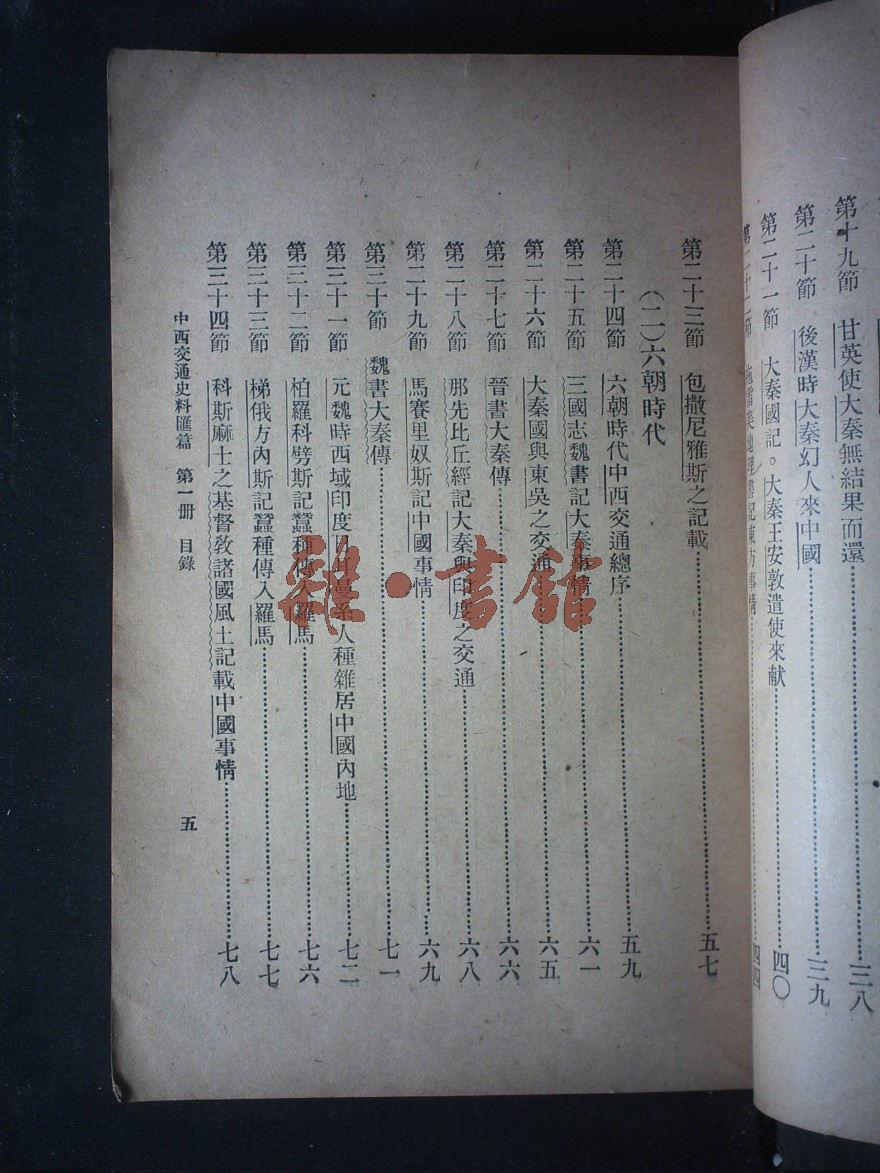 第十九節　甘英使大秦無結果而還……三八
第二十節　後漢時大秦幻人來中國……三九
第二十一節　大秦國記。大秦王安敦遣使來献……四〇
第二十二節　地理書記東方事情……四四
第二十三節　包撒尼雅斯之記載……五七
(二)六朝時代
第二十四節　六朝時代中西交通總序……五九
第二十五節　三國志魏書記大秦事情……六一
第二十六節　大秦國與東吳之交通……六五
第二十七節　晉書大秦傳……六六
第二十八節　那先比丘經記大秦與印度之交通……六八
第二十九節　馬賽里奴斯記中國事情……六九
第三十節　魏書大秦傳……七一
第三十一節　元魏時西域印度人種雜居中國內地……七二
第三十二節　柏羅科劈斯記蠶種傳入羅馬……七六
第三十三節　梯俄方內斯記蠶種傳入羅馬……七七
第三十四節　科斯麻士之基督教諸國風土記載中國事情……七八
中西交通史料匯篇　第一冊　目錄
五
書館